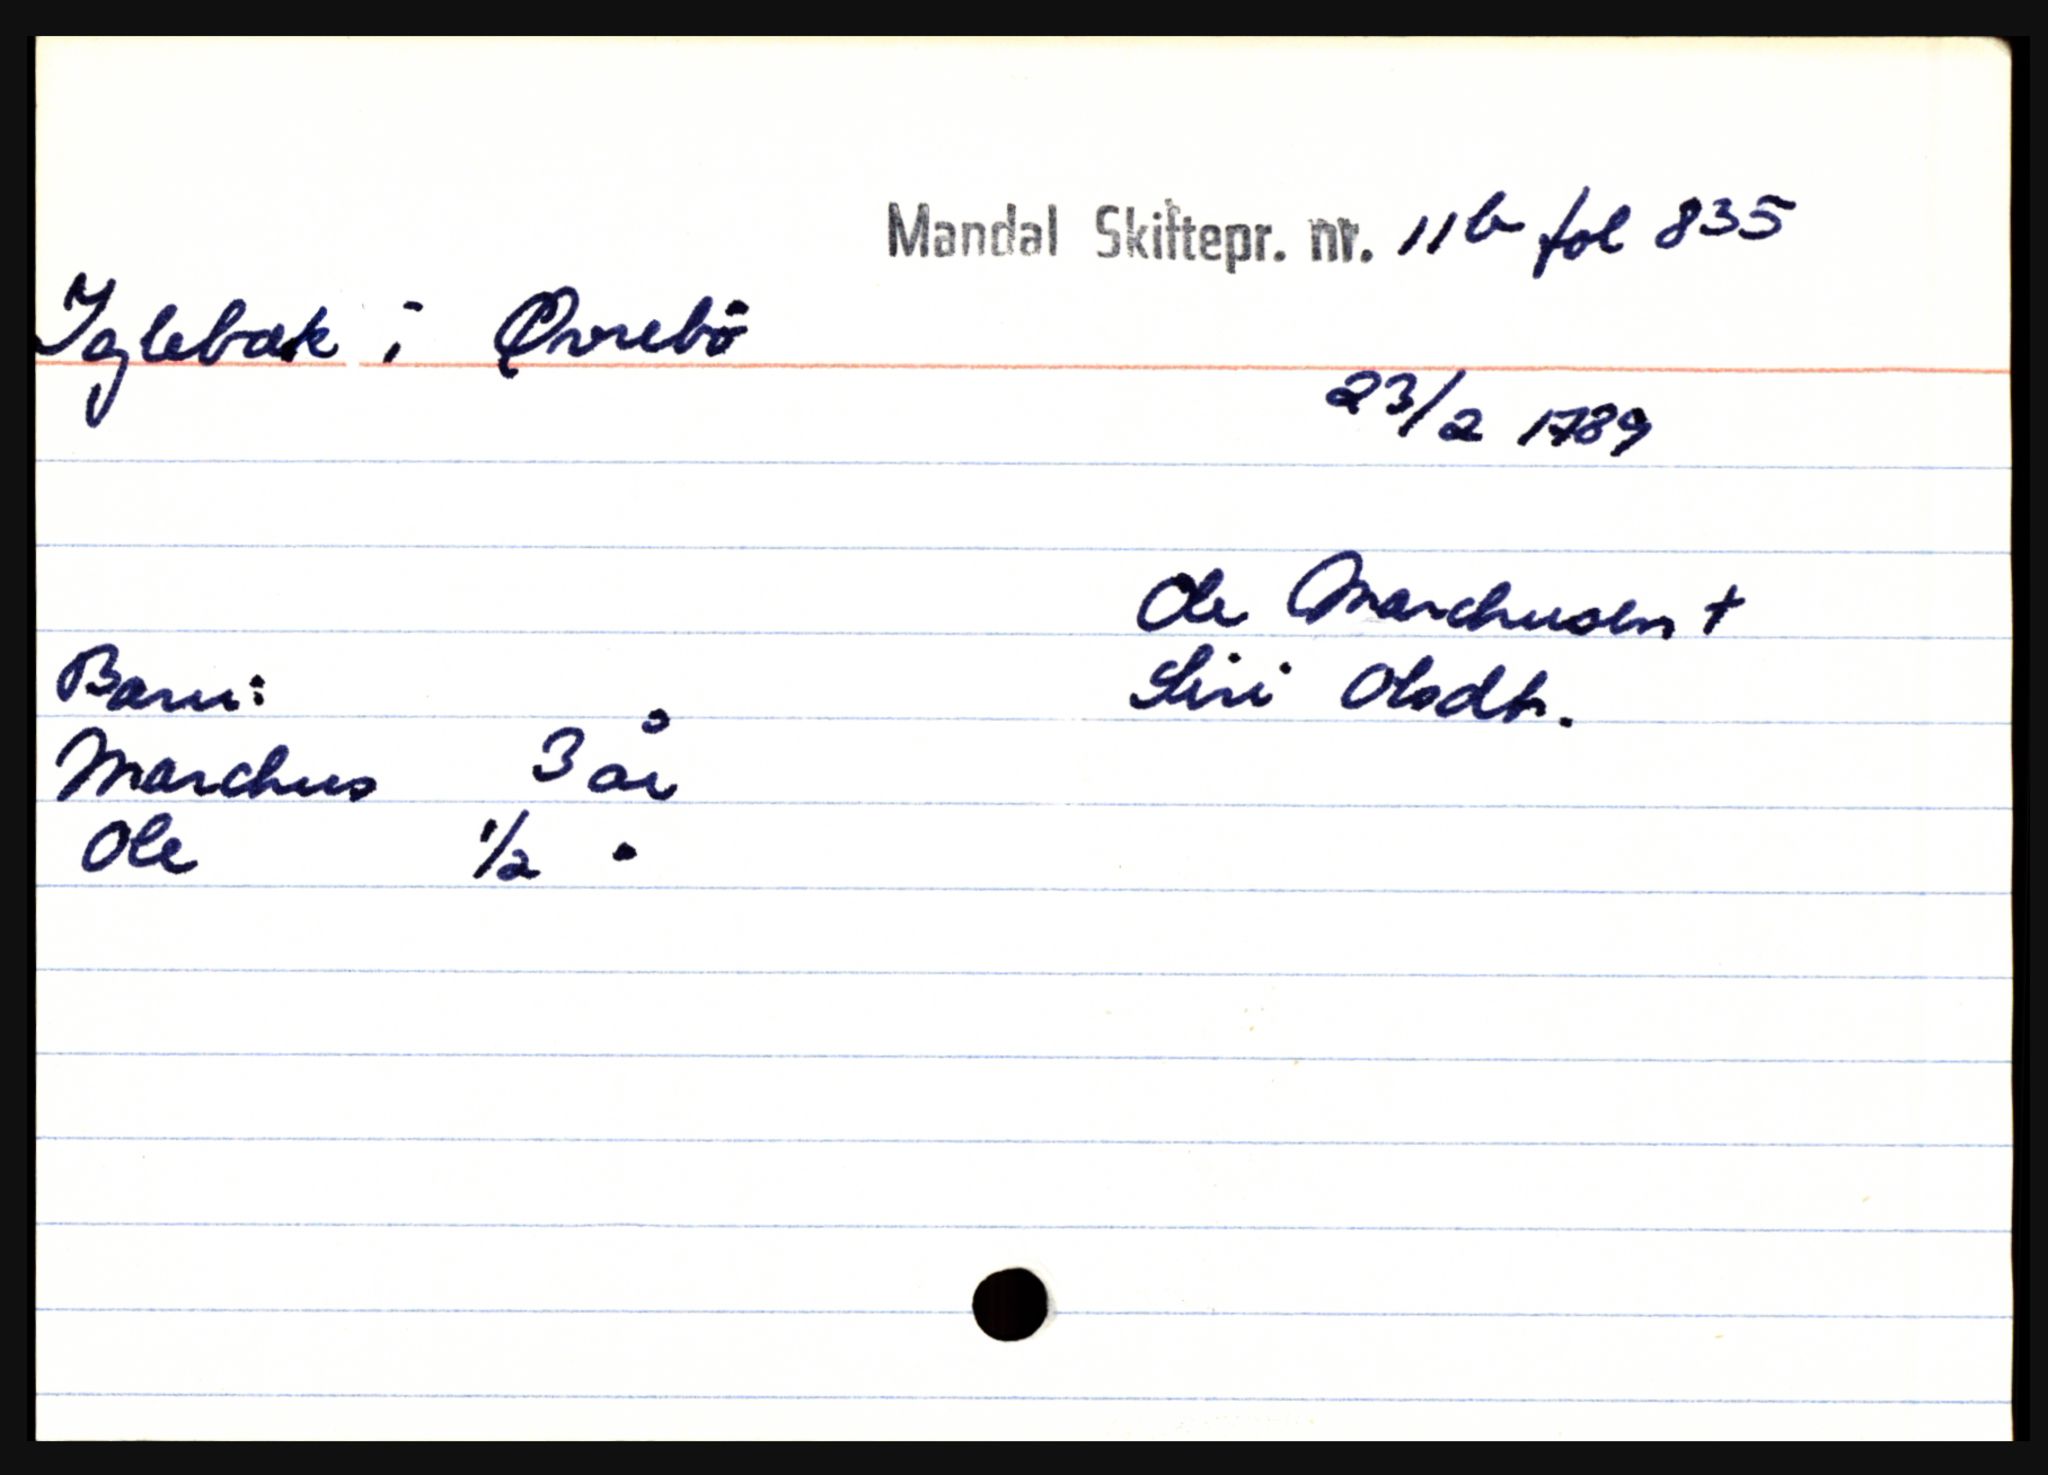 Mandal Skiftepr. nr. 11b fol 835
Iglebæk i Øvrebö
23/2 1789
Ole Marchusen +
Barn:
Siri Olsdtr.
Marchus 3 år
Ole 1/2 "